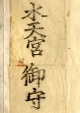 水天宮御守